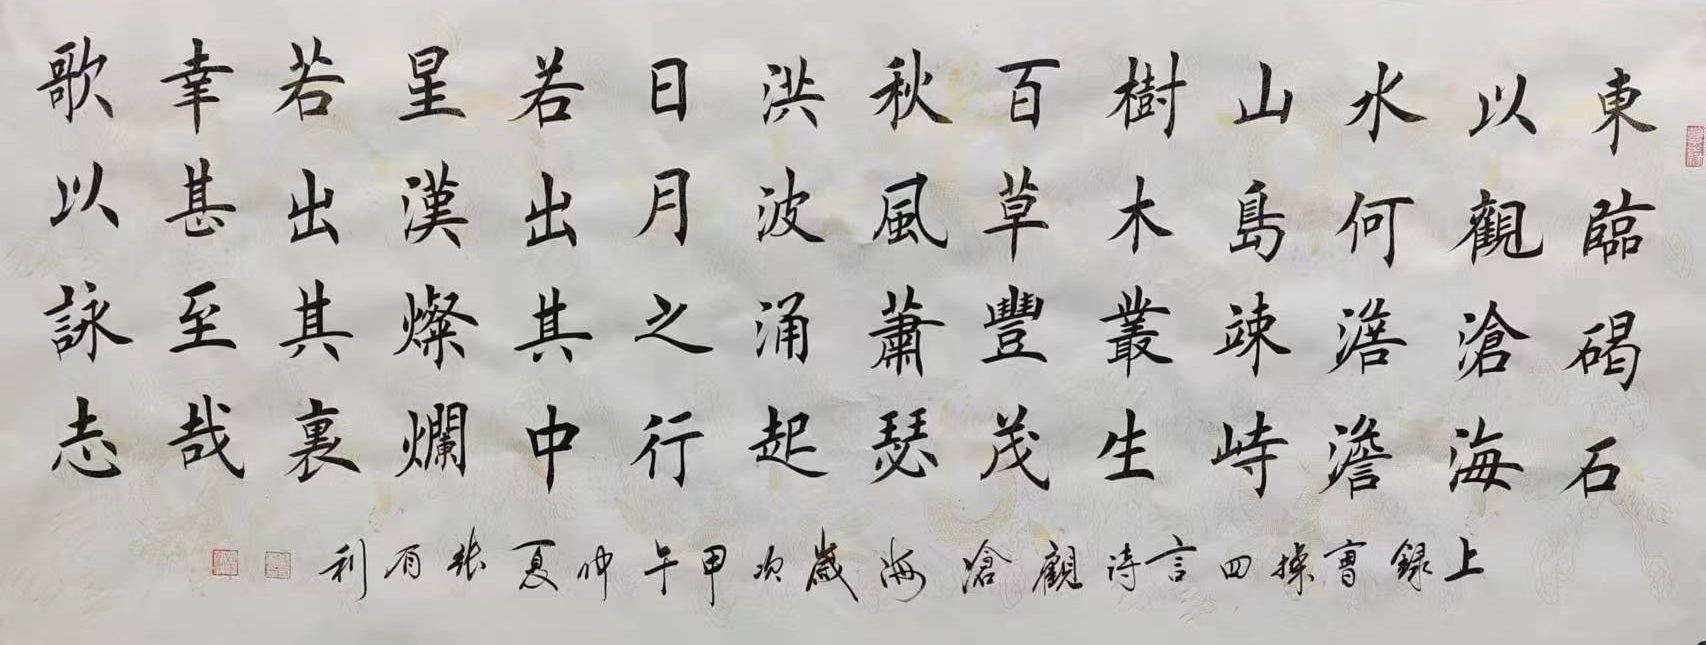 東臨碣石
以觀滄海
水何澹澹
山島竦峙
樹木叢生
百草豐茂
秋風蕭瑟
洪波涌起
日月之行
若出其中
星漢燦爛
若出其裏
幸甚至哉
歌以詠志
上錄曹操四言詩觀滄海歲次甲午仲夏張有利